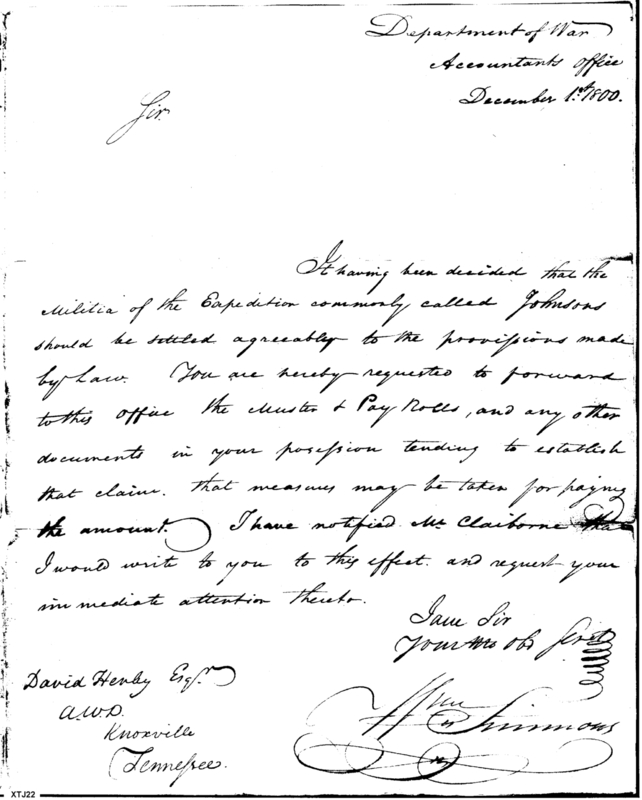 Department of War
Accountants office
December 1st 1800.
Sir
It having been decided that the
Militia of the Expedition commonly called Johnsons
should be settled agreeably to the provissions made
by Law. You are hereby requested to forward
to this office the Muster & Pay Rolls, and any other
documents in your possession tending to establish
that claim. that measures may be taken for paying
the amount. I have notified Mr Claiborne that
I would write to you to this effect. and request your
immediate attention thereto.
I am Sir
Your Mo Obt Servt
Wm Simmons
David Henly Esqr.
A.W.D.
Knoxville
Tennessee.
XTJ22